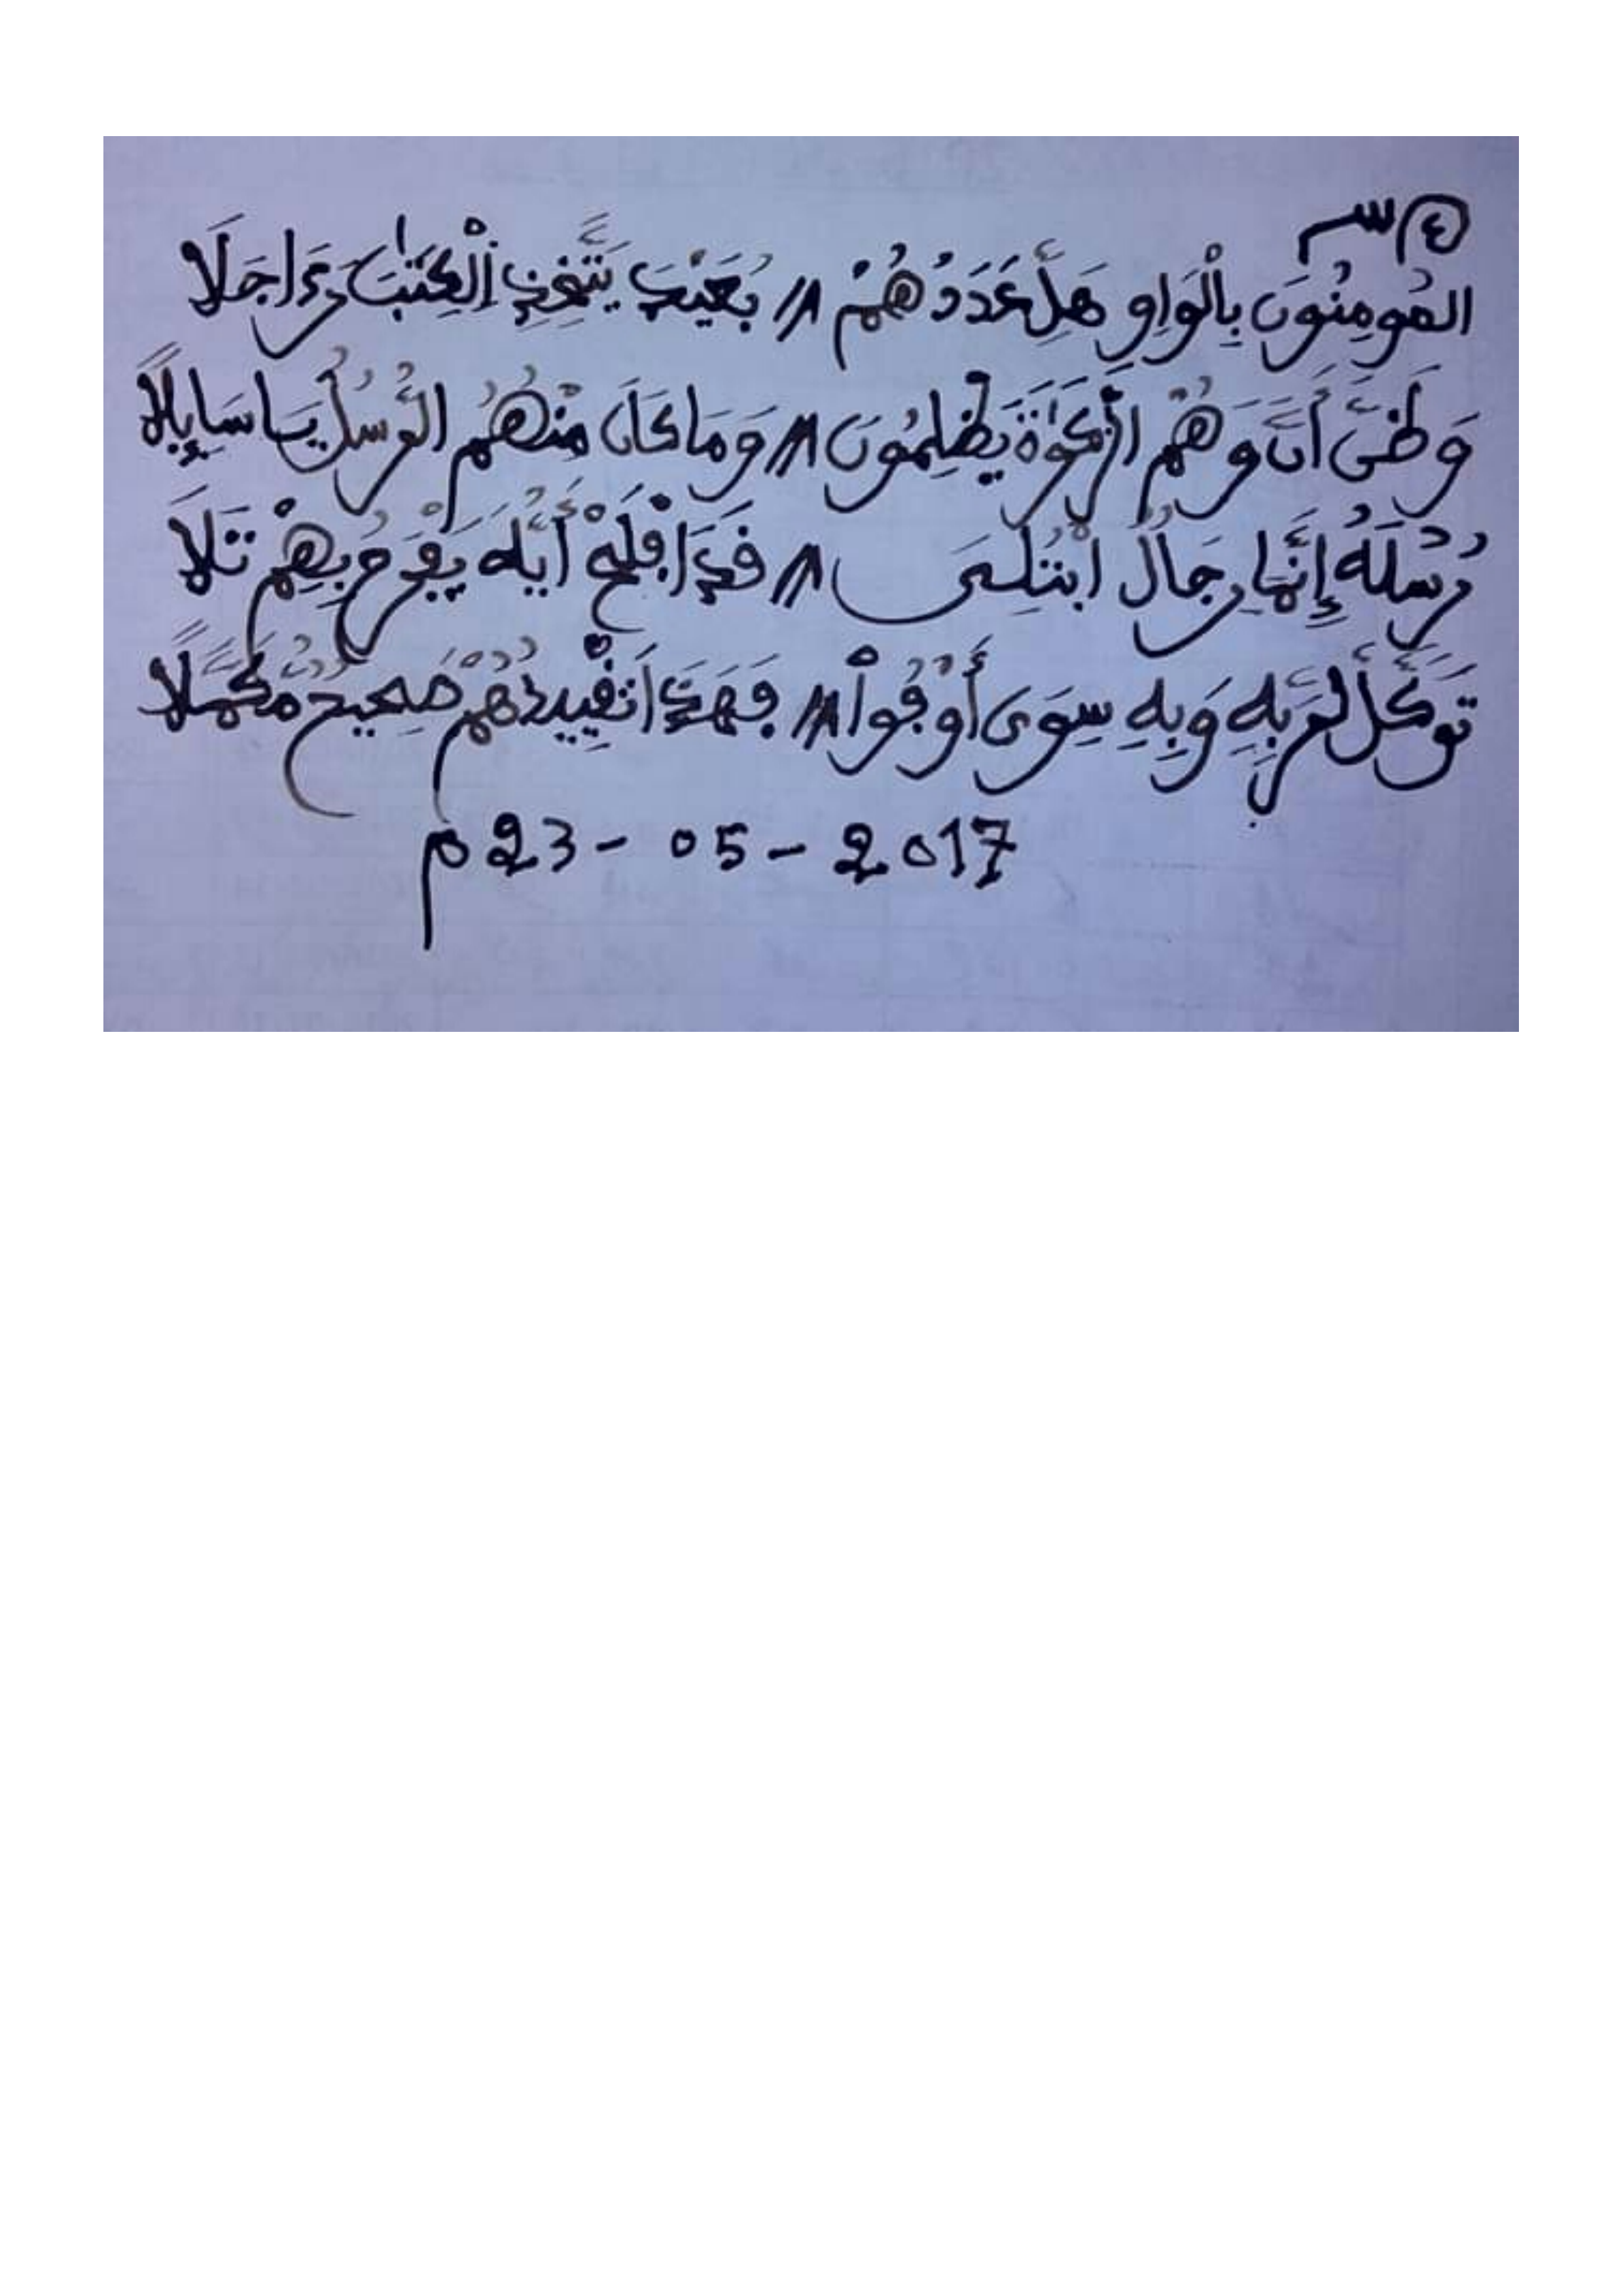 ٤ سـ
المُومِنُونَ بِالْوَاوِ هَلْ عَدَدُهُمْ // بُعَيْبَ يَتَّخِذِ اِلْكِتَٰبَ رَءَا جَلَا
وَظَنَّ أَنَّ وَهُم الزَّكَوٰةَ يَظْلِمُونَ // وَمَا كَانَ مِنْهُمُ الرُّسُلُ يَا سَايِلًا
رُسْلَهُ إِنَّمَا رِجَالٌ ابْتُلِىَ // فَدَ اَفْلَحَ أَيُّهَ يَفْرَحُ بِهِمْ تَلَا
تَوَكَّلْ لِرَبِّهِ وَبِهِ سِوَى أَوْفُواْ // فَهَـ اَتَفْيِيدُهُمْ صَحِيحٌ مُكَمَّلًا
23 - 05 - 2017 م